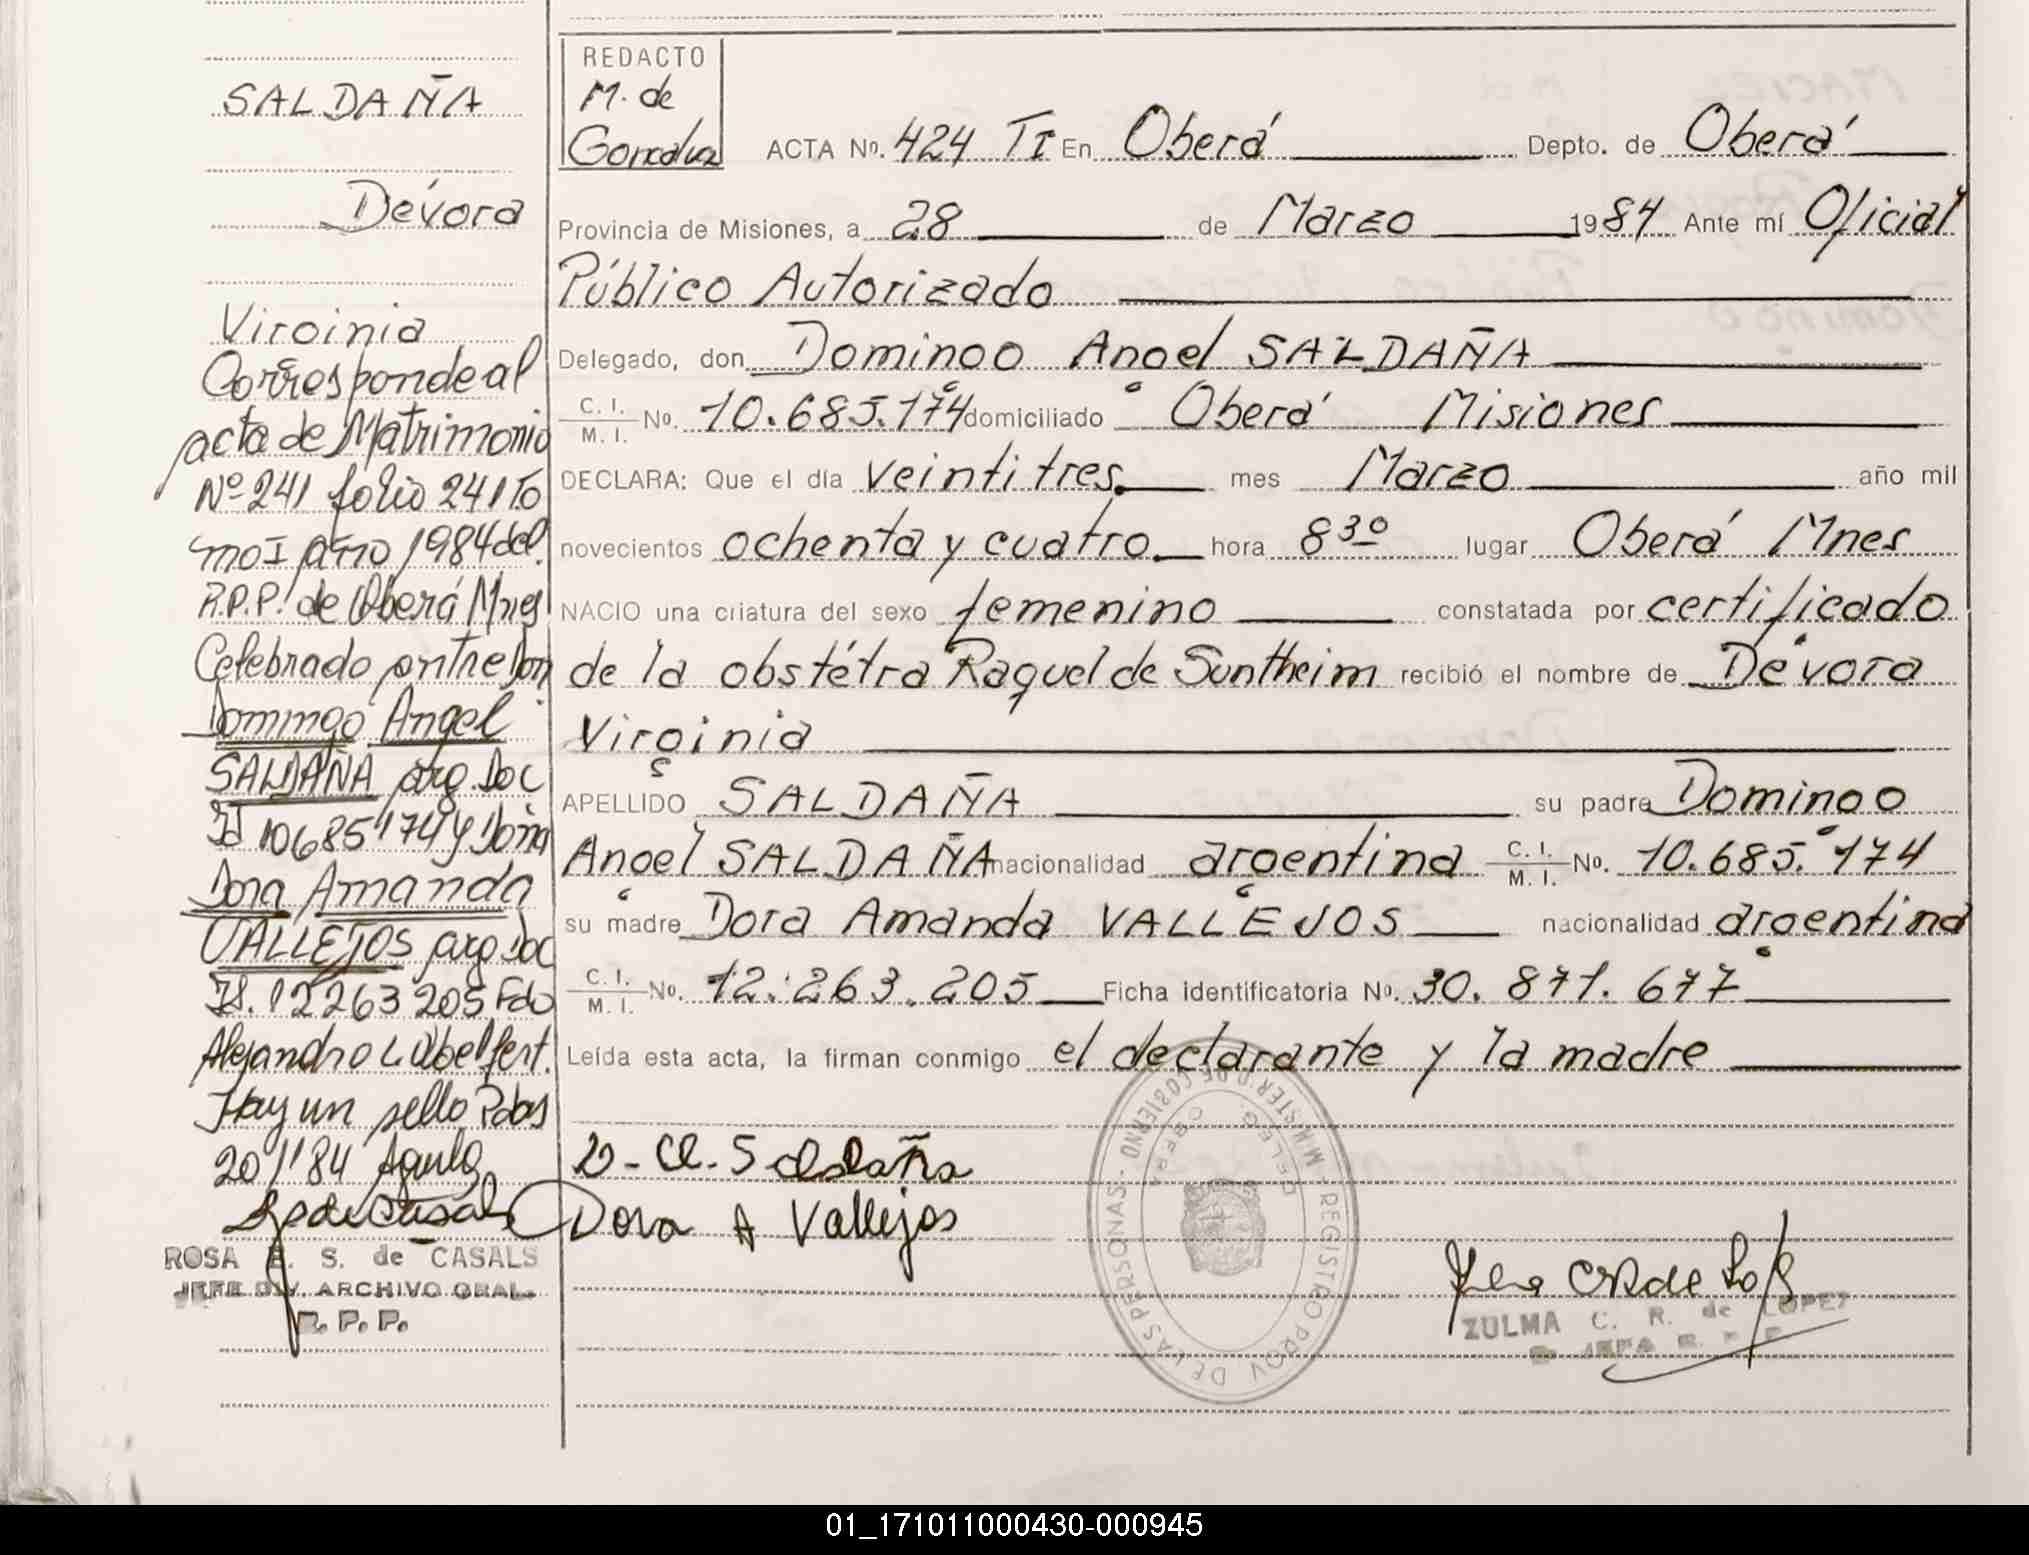 SALDAÑA
Dévora
Virginia
Corresponde al
acta de Matrimonio
Nº 241 folio 241 To
mo I año 1984 del
R.P.P. de Oberá Mnes
Celebrado entre Don
Domingo Angel
SALDAÑA arg. Doc
Id 10685174 y Doña
Dora Amanda
VALLEJOS arg. Doc
Id. 12263205 Fdo
Alejandro L.
Hay un sello Pdas
ROSA E. S. de CASALS
JEFE DIV. ARCHIVO GRAL.
R. P. P.
REDACTO
M. de
ACTA No. 424 TI En Oberá Depto. de Oberá
Provincia de Misiones, a 28 de Marzo 1984 Ante mí Oficial
Público Autorizado
Delegado, don Domingo Angel SALDAÑA
C. I. M. I. No. 10.685.174 domiciliado Oberá Misiones
DECLARA: Que el día veintitres mes Marzo año mil
novecientos ochenta y cuatro hora 8 30 lugar Oberá Mnes
NACIO una criatura del sexo femenino constatada por certificado
de la obstétra Raquel de Suntheim recibió el nombre de Dévora
Virginia
APELLIDO SALDAÑA su padre Domingo
Angel SALDAÑA nacionalidad argentina C. I. M. I. No. 10.685.174
su madre Dora Amanda VALLEJOS nacionalidad argentina
C. I. M. I. No. 12.263.205 Ficha identificatoria No. 30.871.677
Leída esta acta, la firman conmigo el declarante y la madre
D. A. Saldaña
Dora A Vallejos
MINISTERIO DE GOBIERNO - REGISTRO PROV. DE LAS PERSONAS
DELEG.
OBERA
ZULMA C. R. de LOPEZ
JEFA R. P. P.
01_171011000430-000945